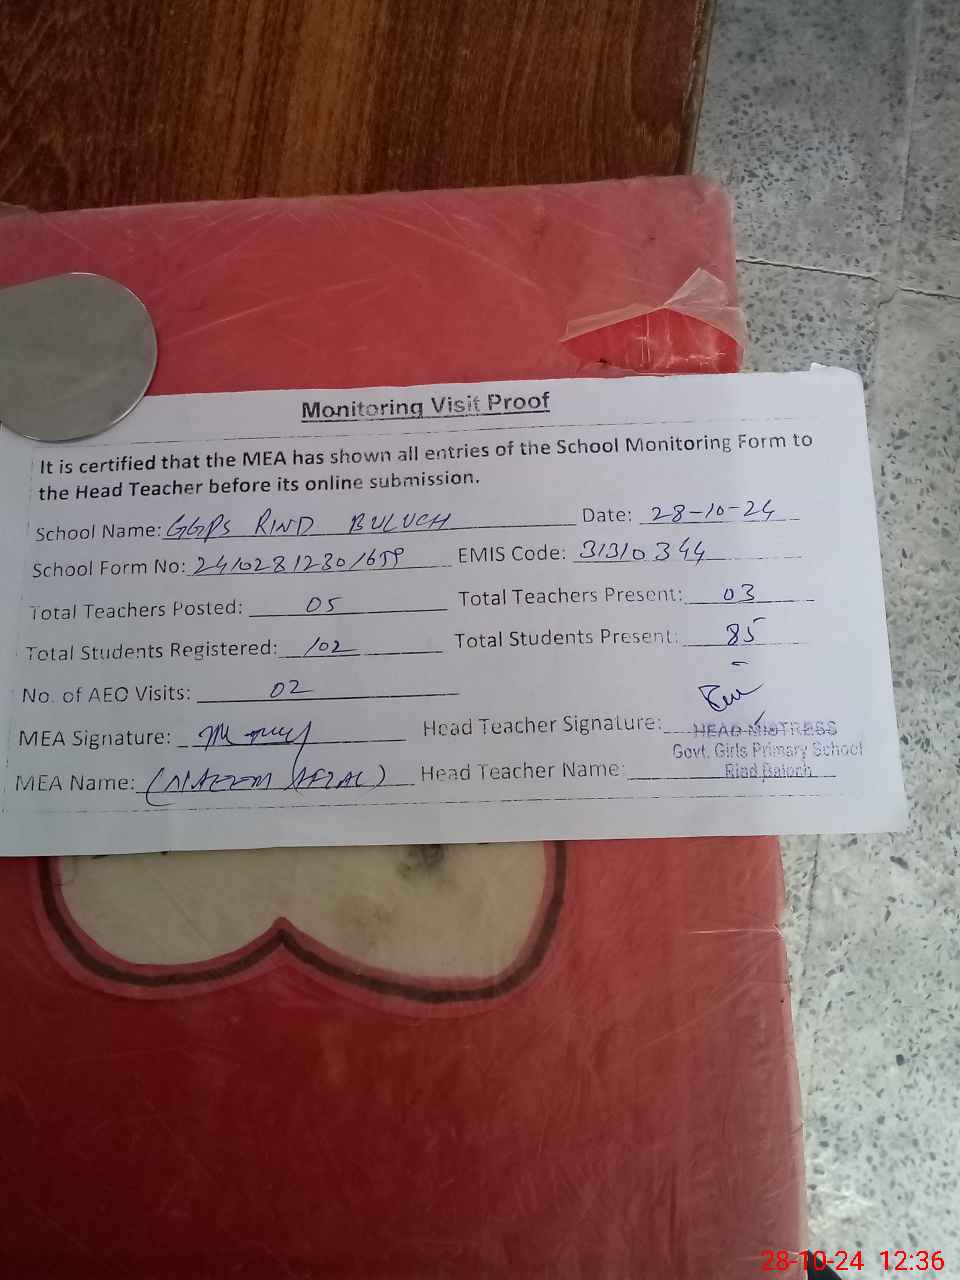 Monitoring Visit Proof
It is certified that the MEA has shown all entries of the School Monitoring Form to
the Head Teacher before its online submission.
School Name: GGPS RIND BULUCH Date: 28-10-24
School Form No: EMIS Code: 31310344
Total Teachers Posted: 05 Total Teachers Present: 03
Total Students Registered: 102 Total Students Present: 85
No. of AEO Visits: 02
MEA Signature: Head Teacher Signature:
HEAD MISTRESS
Govt. Girls Primary School
MEA Name: (NAEEM AFZAL) Head Teacher Name:
Rind Baloch
28-10-24 12:36